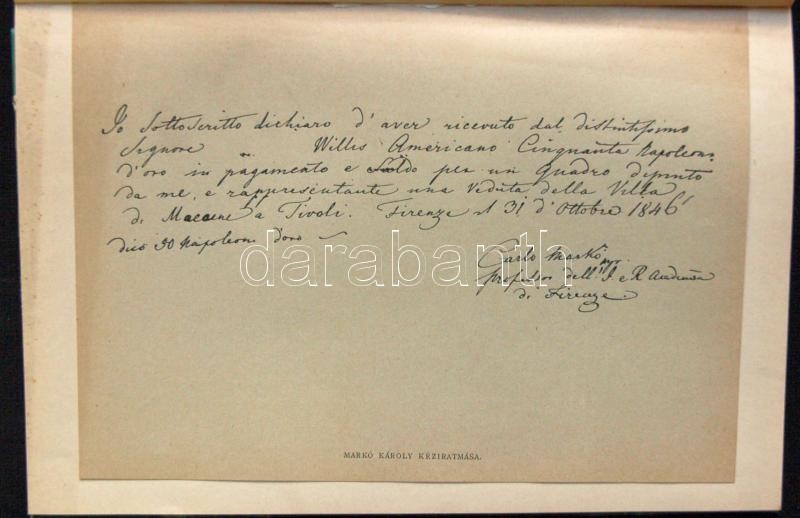 Io Sottoscritto dichiaro d' aver ricevuto dal distintissimo
Signore Willis Americano Cinquanta Napoleoni
d'oro in pagamento e Saldo per un Quadro dipinto
da me, e rappresentante una Veduta della Villa
di Mecene a Tivoli. Firenze il 31 d' Ottobre 1846
dico 50 Napoleoni D'oro
Carlo Markó
professor dell' I. e R. Accademia
di Firenze.
darabanth
MARKÓ KÁROLY KÉZIRATMÁSA.